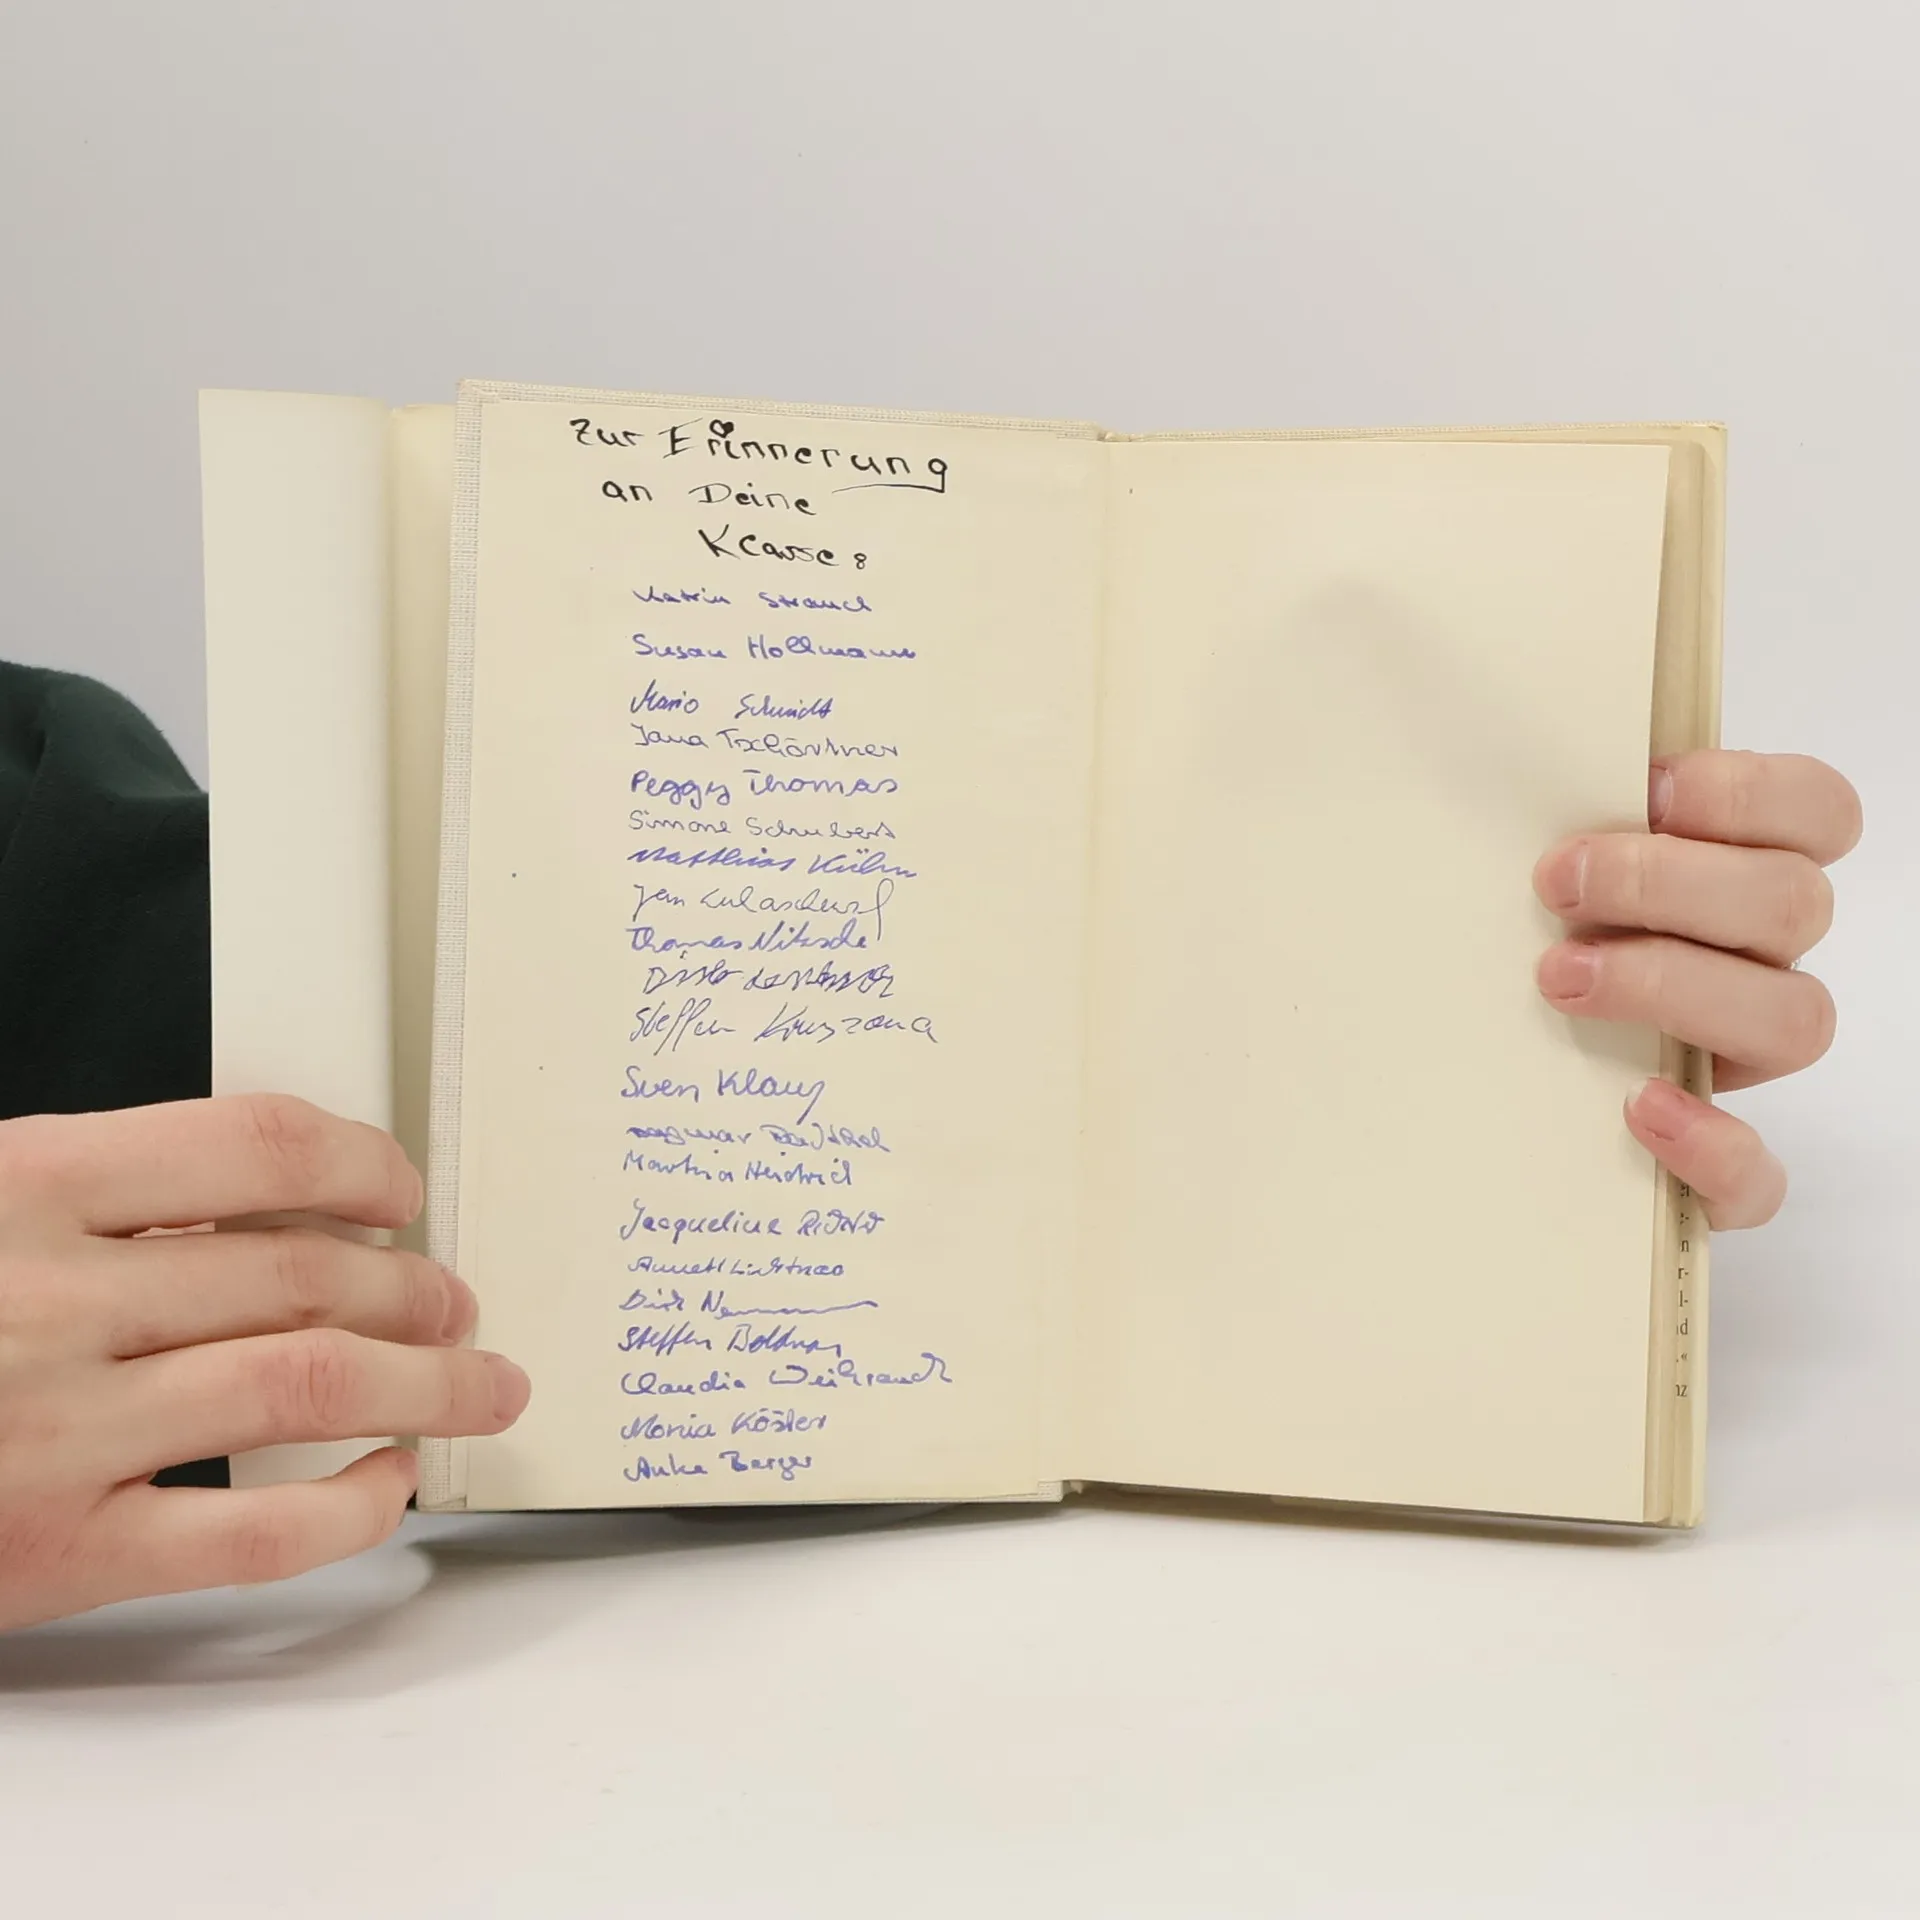 Zur Erinnerung
an Deine
Klasse:
Katrin Strauch
Susan Hollmann
Mario Schmidt
Jana Tschörtner
Peggy Thomas
Simone Schubert
Matthias Kühn
Jan
Thomas Nitzsche
Steffen
Sven Klaus
Dagmar
Martina Heidrich
Jacqueline
Annett
Dirk Neumann
Steffen
Claudia Weihrauch
Monia Köster
Anke Berger
n
r-
l-
nd
.«
nz